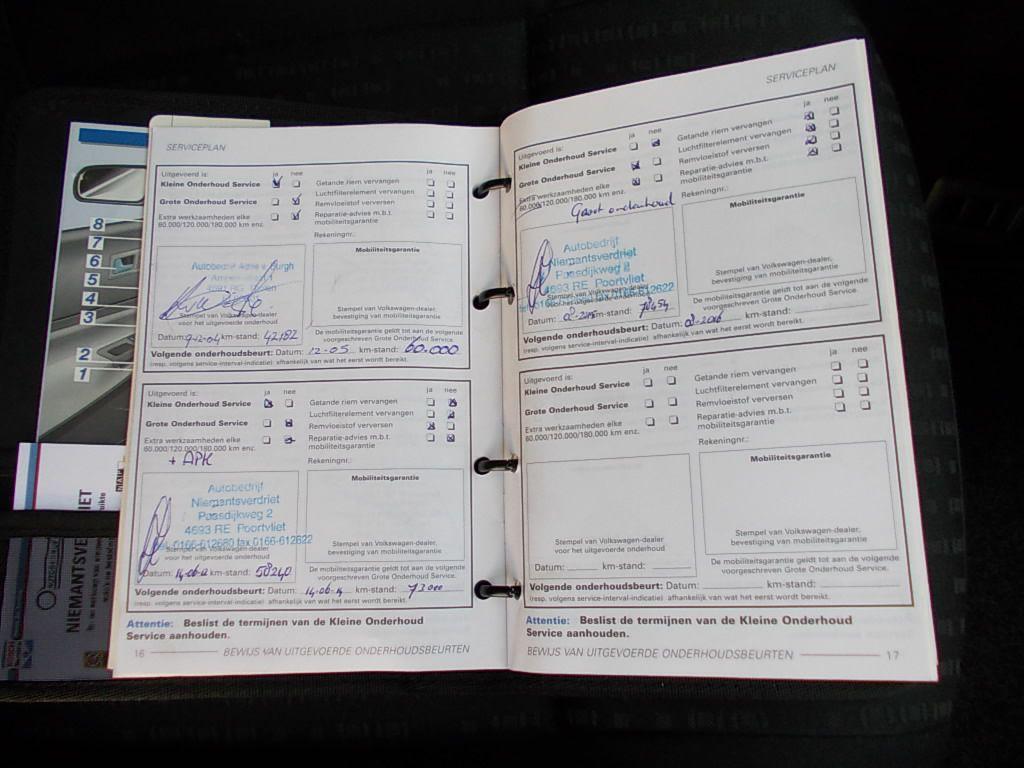 SERVICEPLAN
Uitgevoerd is: ja nee
Kleine Onderhoud Service
Grote Onderhoud Service
Extra werkzaamheden elke
60.000/120.000/180.000 km enz.
ja nee
Getande riem vervangen
Luchtfilterelement vervangen
Remvloeistof verversen
Reparatie-advies m.b.t.
mobiliteitsgarantie
Rekeningnr.:
Autobedrijf
voor het uitgevoerde onderhoud
Datum: 9-12-04 km-stand: 42182
Mobiliteitsgarantie
Stempel van Volkswagen-dealer,
bevestiging van mobiliteitsgarantie
De mobiliteitsgarantie geldt tot aan de volgende
voorgeschreven Grote Onderhoud Service.
Volgende onderhoudsbeurt: Datum: 12-05 km-stand: 60.000
(resp. volgens service-interval-indicatie) afhankelijk van wat het eerst wordt bereikt.
Uitgevoerd is: ja nee
Kleine Onderhoud Service
Grote Onderhoud Service
Extra werkzaamheden elke
60.000/120.000/180.000 km enz.
+ APK
ja nee
Getande riem vervangen
Luchtfilterelement vervangen
Remvloeistof verversen
Reparatie-advies m.b.t.
mobiliteitsgarantie
Rekeningnr.:
Autobedrijf
Niemantsverdriet
Paasdijkweg 2
4693 RE Poortvliet
tel. 0166-612680 fax 0166-612622
Stempel van Volkswagen-dealer
voor het uitgevoerde onderhoud
Datum: km-stand: 58240
Mobiliteitsgarantie
Stempel van Volkswagen-dealer,
bevestiging van mobiliteitsgarantie
De mobiliteitsgarantie geldt tot aan de volgende
voorgeschreven Grote Onderhoud Service.
Volgende onderhoudsbeurt: Datum: 14-06-14 km-stand: 73000
(resp. volgens service-interval-indicatie) afhankelijk van wat het eerst wordt bereikt.
Attentie: Beslist de termijnen van de Kleine Onderhoud
Service aanhouden.
16 BEWIJS VAN UITGEVOERDE ONDERHOUDSBEURTEN
SERVICEPLAN
Uitgevoerd is: ja nee
Kleine Onderhoud Service
Grote Onderhoud Service
Extra werkzaamheden elke
60.000/120.000/180.000 km enz.
Groot onderhoud
ja nee
Getande riem vervangen
Luchtfilterelement vervangen
Remvloeistof verversen
Reparatie-advies m.b.t.
mobiliteitsgarantie
Rekeningnr.:
Autobedrijf
Niemantsverdriet
Paasdijkweg 2
4693 RE Poortvliet
fax 0166-612622
Datum: km-stand:
Mobiliteitsgarantie
Stempel van Volkswagen-dealer,
bevestiging van mobiliteitsgarantie
De mobiliteitsgarantie geldt tot aan de volgende
voorgeschreven Grote Onderhoud Service.
Volgende onderhoudsbeurt: Datum: km-stand:
(resp. volgens service-interval-indicatie) afhankelijk van wat het eerst wordt bereikt.
Uitgevoerd is: ja nee
Kleine Onderhoud Service
Grote Onderhoud Service
Extra werkzaamheden elke
60.000/120.000/180.000 km enz.
ja nee
Getande riem vervangen
Luchtfilterelement vervangen
Remvloeistof verversen
Reparatie-advies m.b.t.
mobiliteitsgarantie
Rekeningnr.:
Stempel van Volkswagen-dealer
voor het uitgevoerde onderhoud
Datum: km-stand:
Mobiliteitsgarantie
Stempel van Volkswagen-dealer,
bevestiging van mobiliteitsgarantie
De mobiliteitsgarantie geldt tot aan de volgende
voorgeschreven Grote Onderhoud Service.
Volgende onderhoudsbeurt: Datum: km-stand:
(resp. volgens service-interval-indicatie) afhankelijk van wat het eerst wordt bereikt.
Attentie: Beslist de termijnen van de Kleine Onderhoud
Service aanhouden.
BEWIJS VAN UITGEVOERDE ONDERHOUDSBEURTEN 17
8
7
6
5
4
3
2
1
NIEMANTSVE